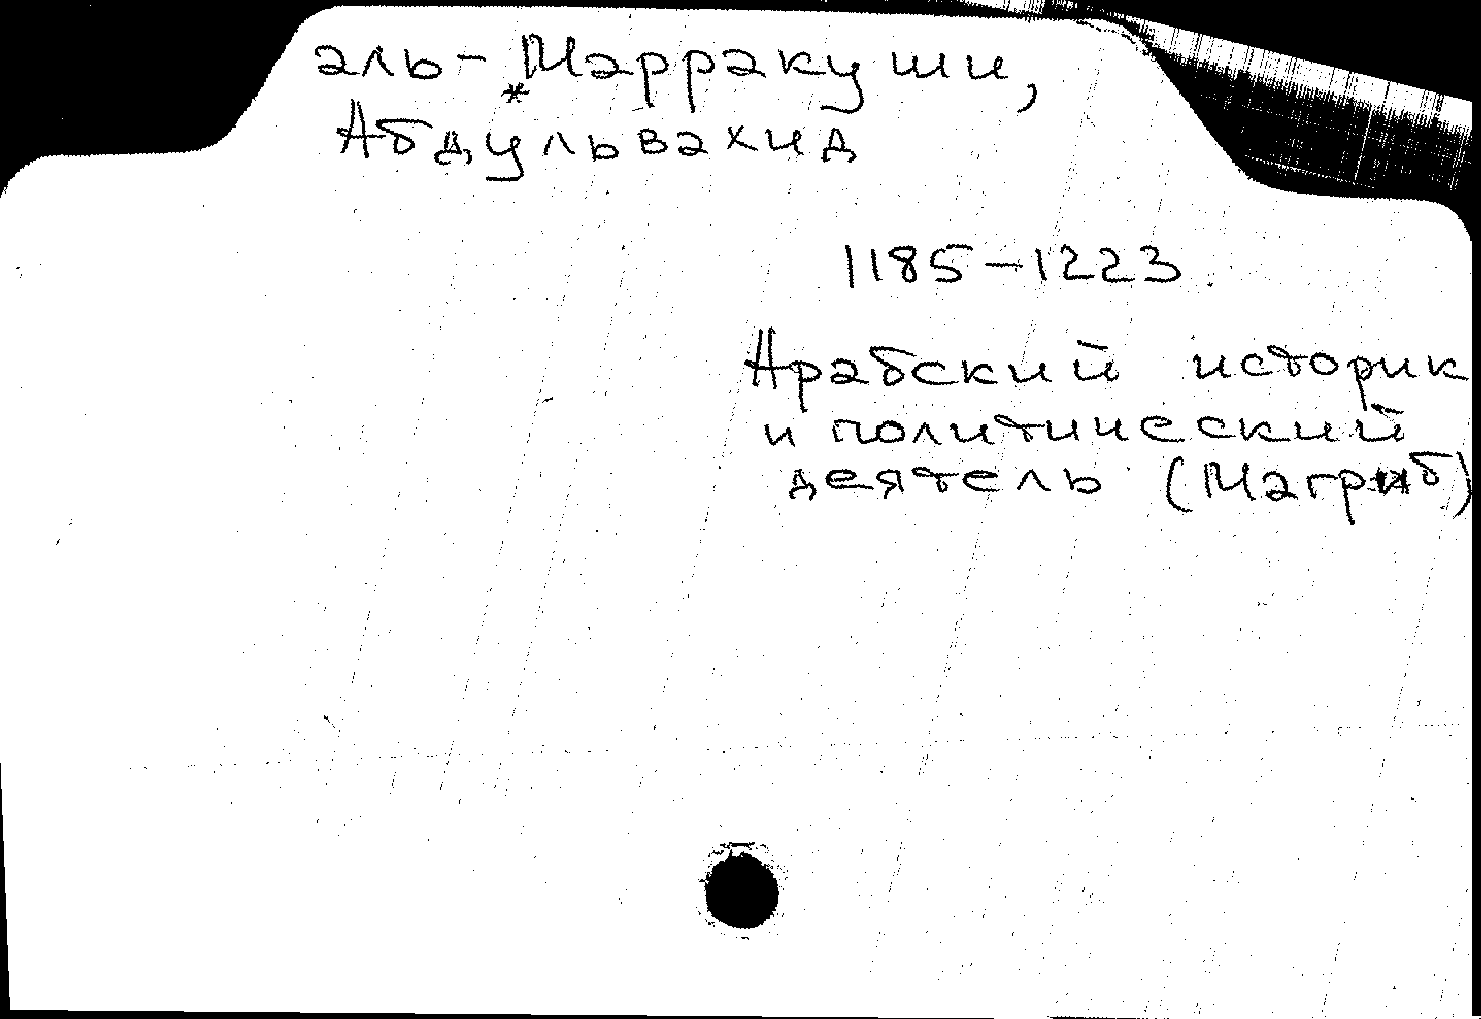 аль-Марракуши,
*
Абдульвахид
1185-1223
Арабский историк
и политический
деятель (Магриб)